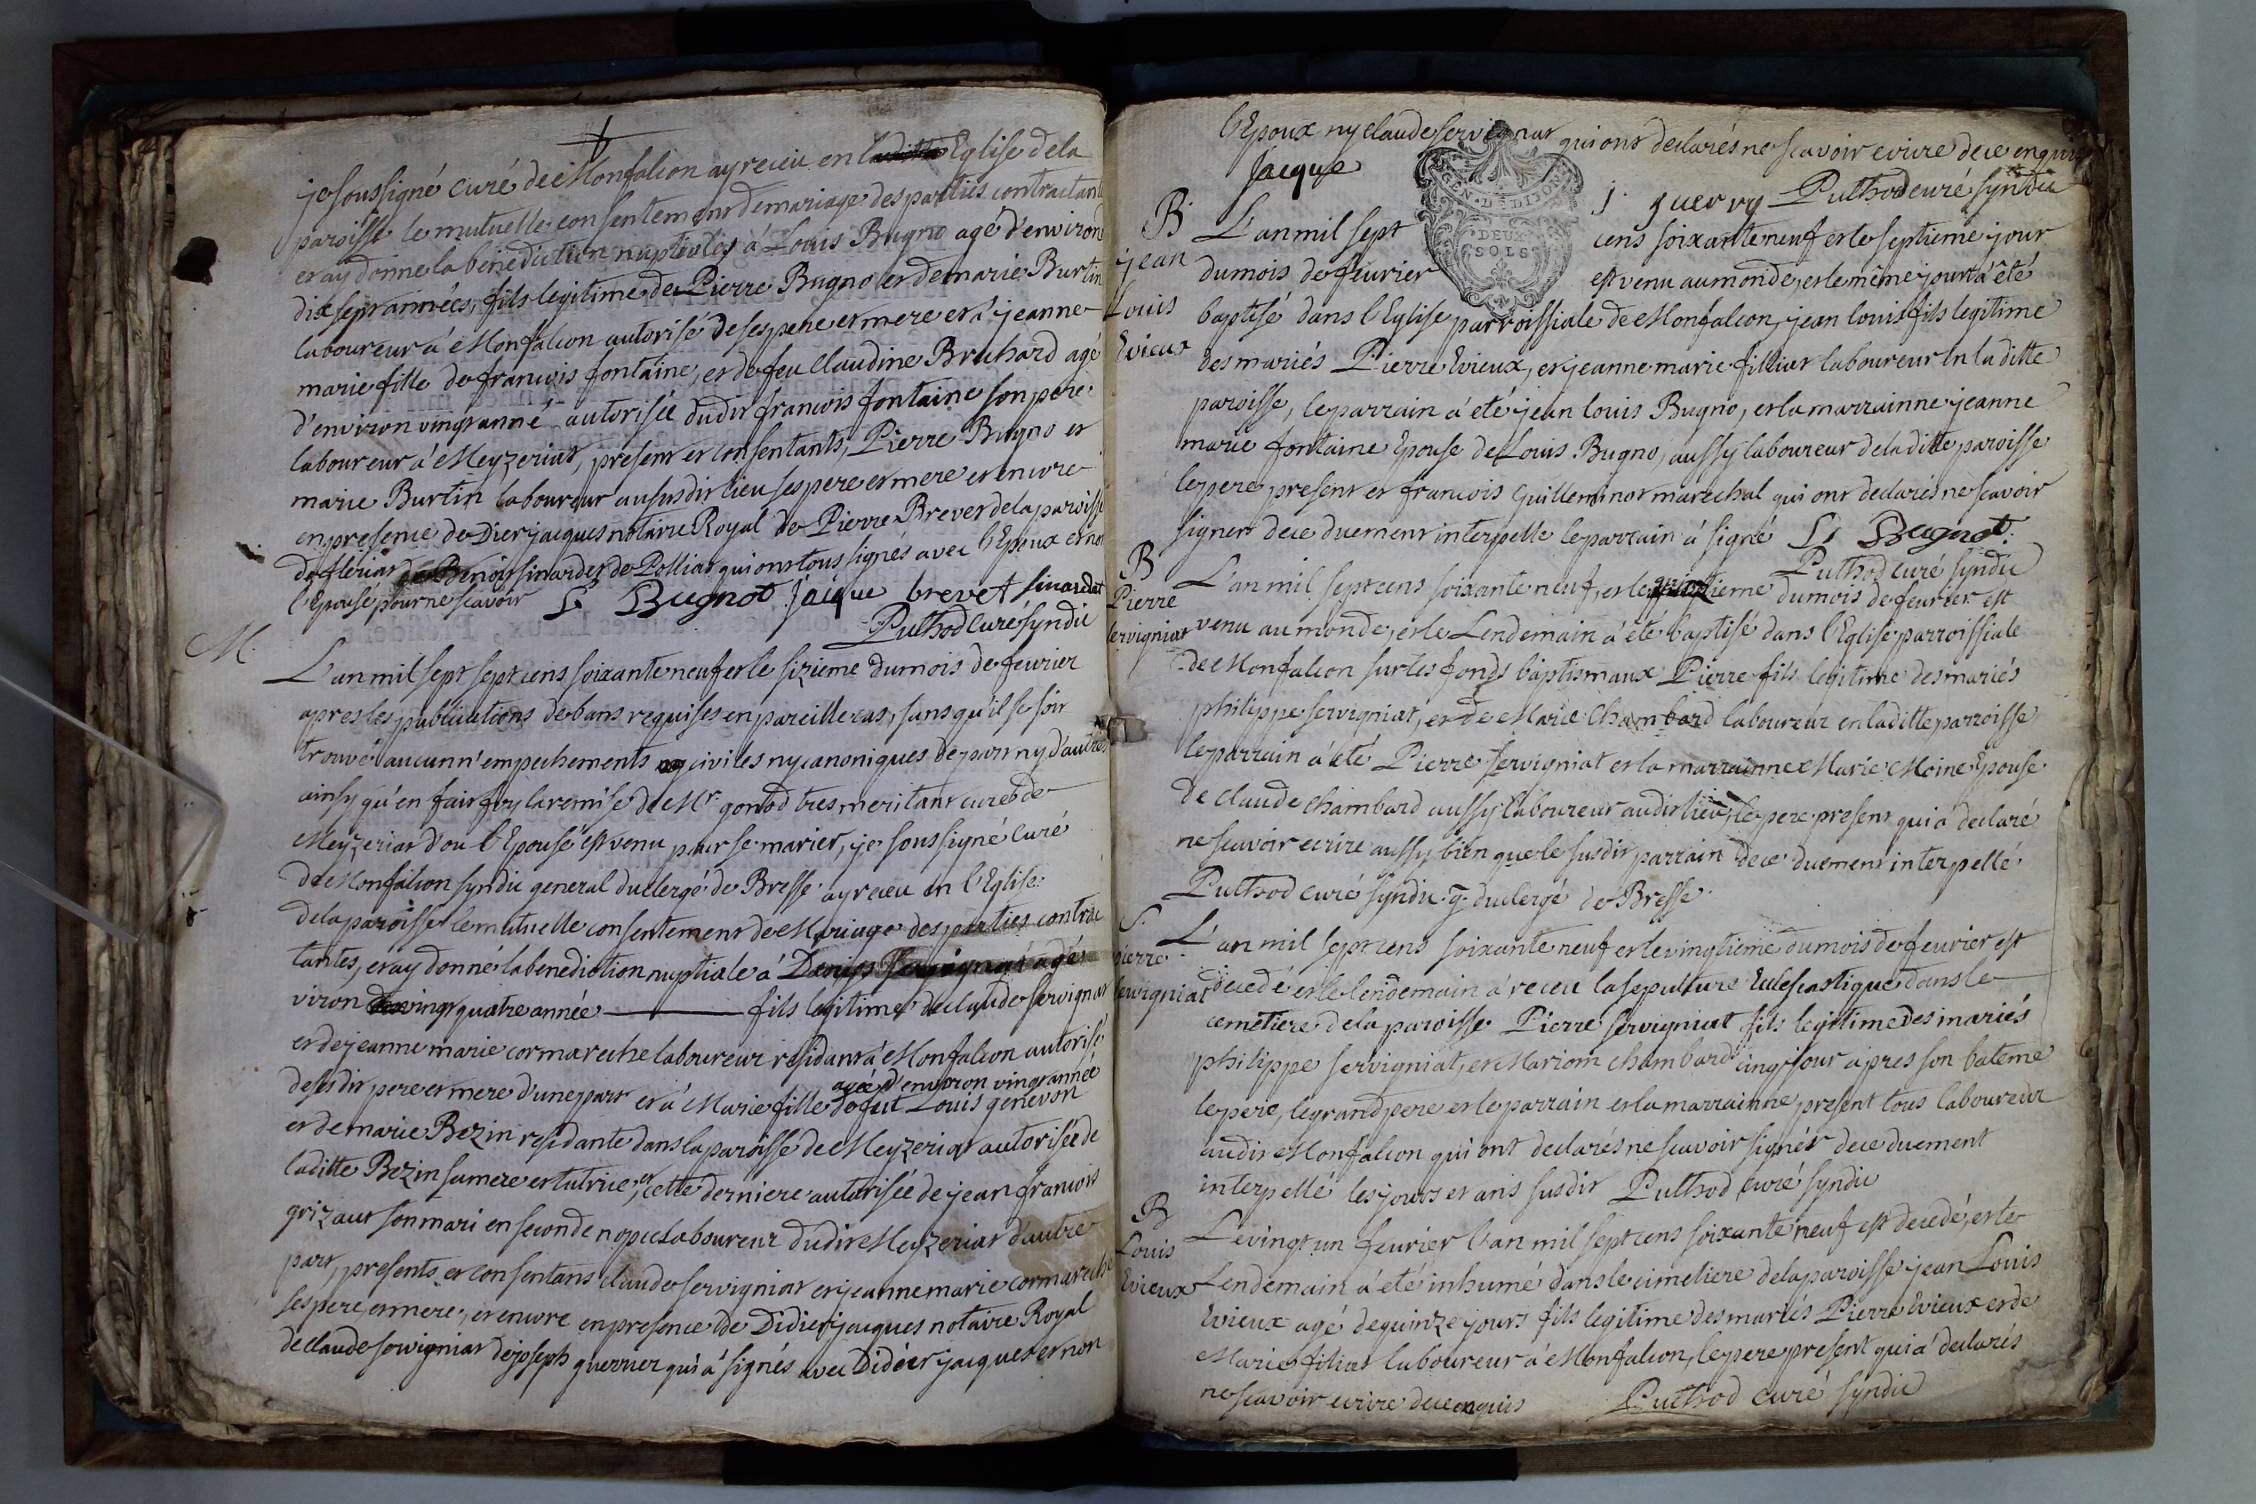 je soussigné curé de Monfalcon ay receu en Eglise de la
paroisse le mutuelle consentement de mariage des parties contractant
et ay donné la bénédiction nuptiales à Louis Bugno agé d'environ
dix sept années, fils legitime de Pierre Bugno et de marie Burtin
laboureur à Monfalcon autorisé de ses pere et mere et à jeanne
marie fille de francois fontaine, et de feu Claudine Bruhard agé
d'environ vingt anné autorisée dudit francois fontaine son pere
laboureur à Meyzeriat, present et consentants, Pierre Bugno et
marie Burtin laboureur au susdit lieu ses pere et mere et encore
en presence de Dier jacques notaire Royal de Pierre Brevet de la paroisse
de fleriat de Benoit sinardet de Polliat qui ont tous signés avec l'Epoux et non
l'Epouse pour ne scavoir L Bugnot Jacque brevet sinardet
Puthod curé syndic
M.
L'an mil sept sept cens soixante neuf et le sizieme du mois de fevrier
apres les publications de bans requises en pareille cas, sans qu'il se soit
trouvé aucun n'empechements civiles ny canoniques de part ny d'autres
ainsy qu'en fait foy la remise de Mr. gonod tres meritant curé de
Meyzeriat d'ou l'Epouse est venu pour se marier, je soussigné curé
de Monfalcon syndic general du clergé de Bresse ay receu en l'Eglise
de la paroisse le mutuelle consentement de Mariage des parties contrac
tantes, et ay donné la benediction nuptiale à Denis Servignat agé
viron vingt quatre année fils legitime de claude servignat
et de jeanne marie cormareche laboureur residant à Monfalcon autorisé
de sesdit pere et mere d'une part et à Marie fille de fut Louis genevon
agée d'environ vingt année
et de marie Bezin residante dans la paroisse de Meyzeriat autorisée de
laditte Bezin sa mere et tutrice, et cette derniere autorisée de jean francois
grizaut son mari en seconde nopces laboureur dudit Meyzeriat d'autre
part, presents et consentans claude servigniat et jeanne marie cormareche
ses pere et mere, et encore en presence de Didier jacques notaire Royal
de claude servigniat de joseph guerrier qui à signés avec Didier jacques et non
l'Epoux ny claude servignat qui ont declarés ne scavoir ecrire de ce enquis
Jacque J. guerry Puthod curé syndic
GEN. D. DIJON
DEUX
SOLS
B
jean
Louis
Evieux
L'an mil sept cens soixante neuf et le septieme jour
du mois de fevrier est venu au monde, et le même jour à été
baptisé dans l'Eglise parroissiale de Monfalcon, jean louis fils legitime
des mariés Pierre Evieux, et jeanne marie filliat laboureur en la ditte
paroisse, le parrain à eté jean louis Bugno, et la marrainne jeanne
marie fontaine Epouse de Louis Bugno, aussy laboureur de la ditte paroisse
le pere present et francois Guilleminot marechal qui ont declarés ne scavoir
signer de ce duement interpelle le parrain à signé L Bugnot.
Puthod curé syndic
B
Pierre
Servigniat
L'an mil sept cens soixante neuf, et le du mois de fevrier est
venu au monde, et le Lendemain à été baptisé dans l'Eglise parroissiale
de Monfalcon sur les fonds baptismaux Pierre fils legitime des mariés
philippe servigniat, et de Marie Chambard laboureur en la ditte parroisse
le parrain à été Pierre servigniat et la marrainne Marie Moine Epouse
de claude chambard aussy laboureur audit lieu, le pere present qui a declaré
ne scavoir ecrire aussy bien que le susdit parrain de ce duement interpellé
Puthod curé syndic g. du clergé de Bresse
S.
pierre
servigniat
L'an mil sept cens soixante neuf et le vingtieme du mois de fevrier est
decedé et le lendemain à receu la sepulture Eclesiastique dans le
cemetiere de la paroisse Pierre servigniat fils legitime des mariés
philippe servigniat, et Mariom chambard cinq jour apres son bateme
le pere, le grand pere et le parrain et la marrainne present tous laboureur
audit Monfalcon qui ont declarés ne scavoir signér de ce duement
interpellé les jours et ans susdit Puthod curé syndic
B
Louis
Evieux
Le vingt un fevrier l'an mil sept cens soixante neuf est decedé, et le
Lendemain à eté inhumé dans le cimetiere de la paroisse jean Louis
Evieux agé de quinze jours fils legitime des mariés Pierre Evieux et de
Marie filiat laboureur à Monfalcon, le pere present qui à declarés
ne scavoir ecrire de ce enquis Puthod curé syndic